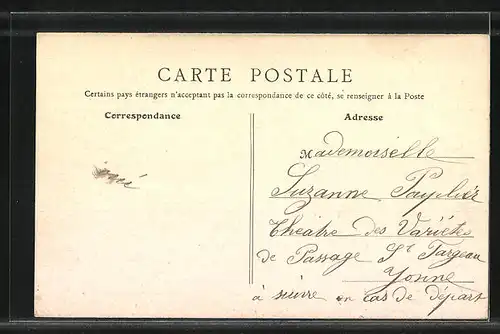 CARTE POSTALE
Certains pays étrangers n'acceptant pas la correspondance de ce côté, se renseigner à la Poste
Correspondance
Adresse
Mademoiselle
Suzanne
Théatre des Variétés
de Passage St Fargeau
Yonne
à suivre en cas de départ